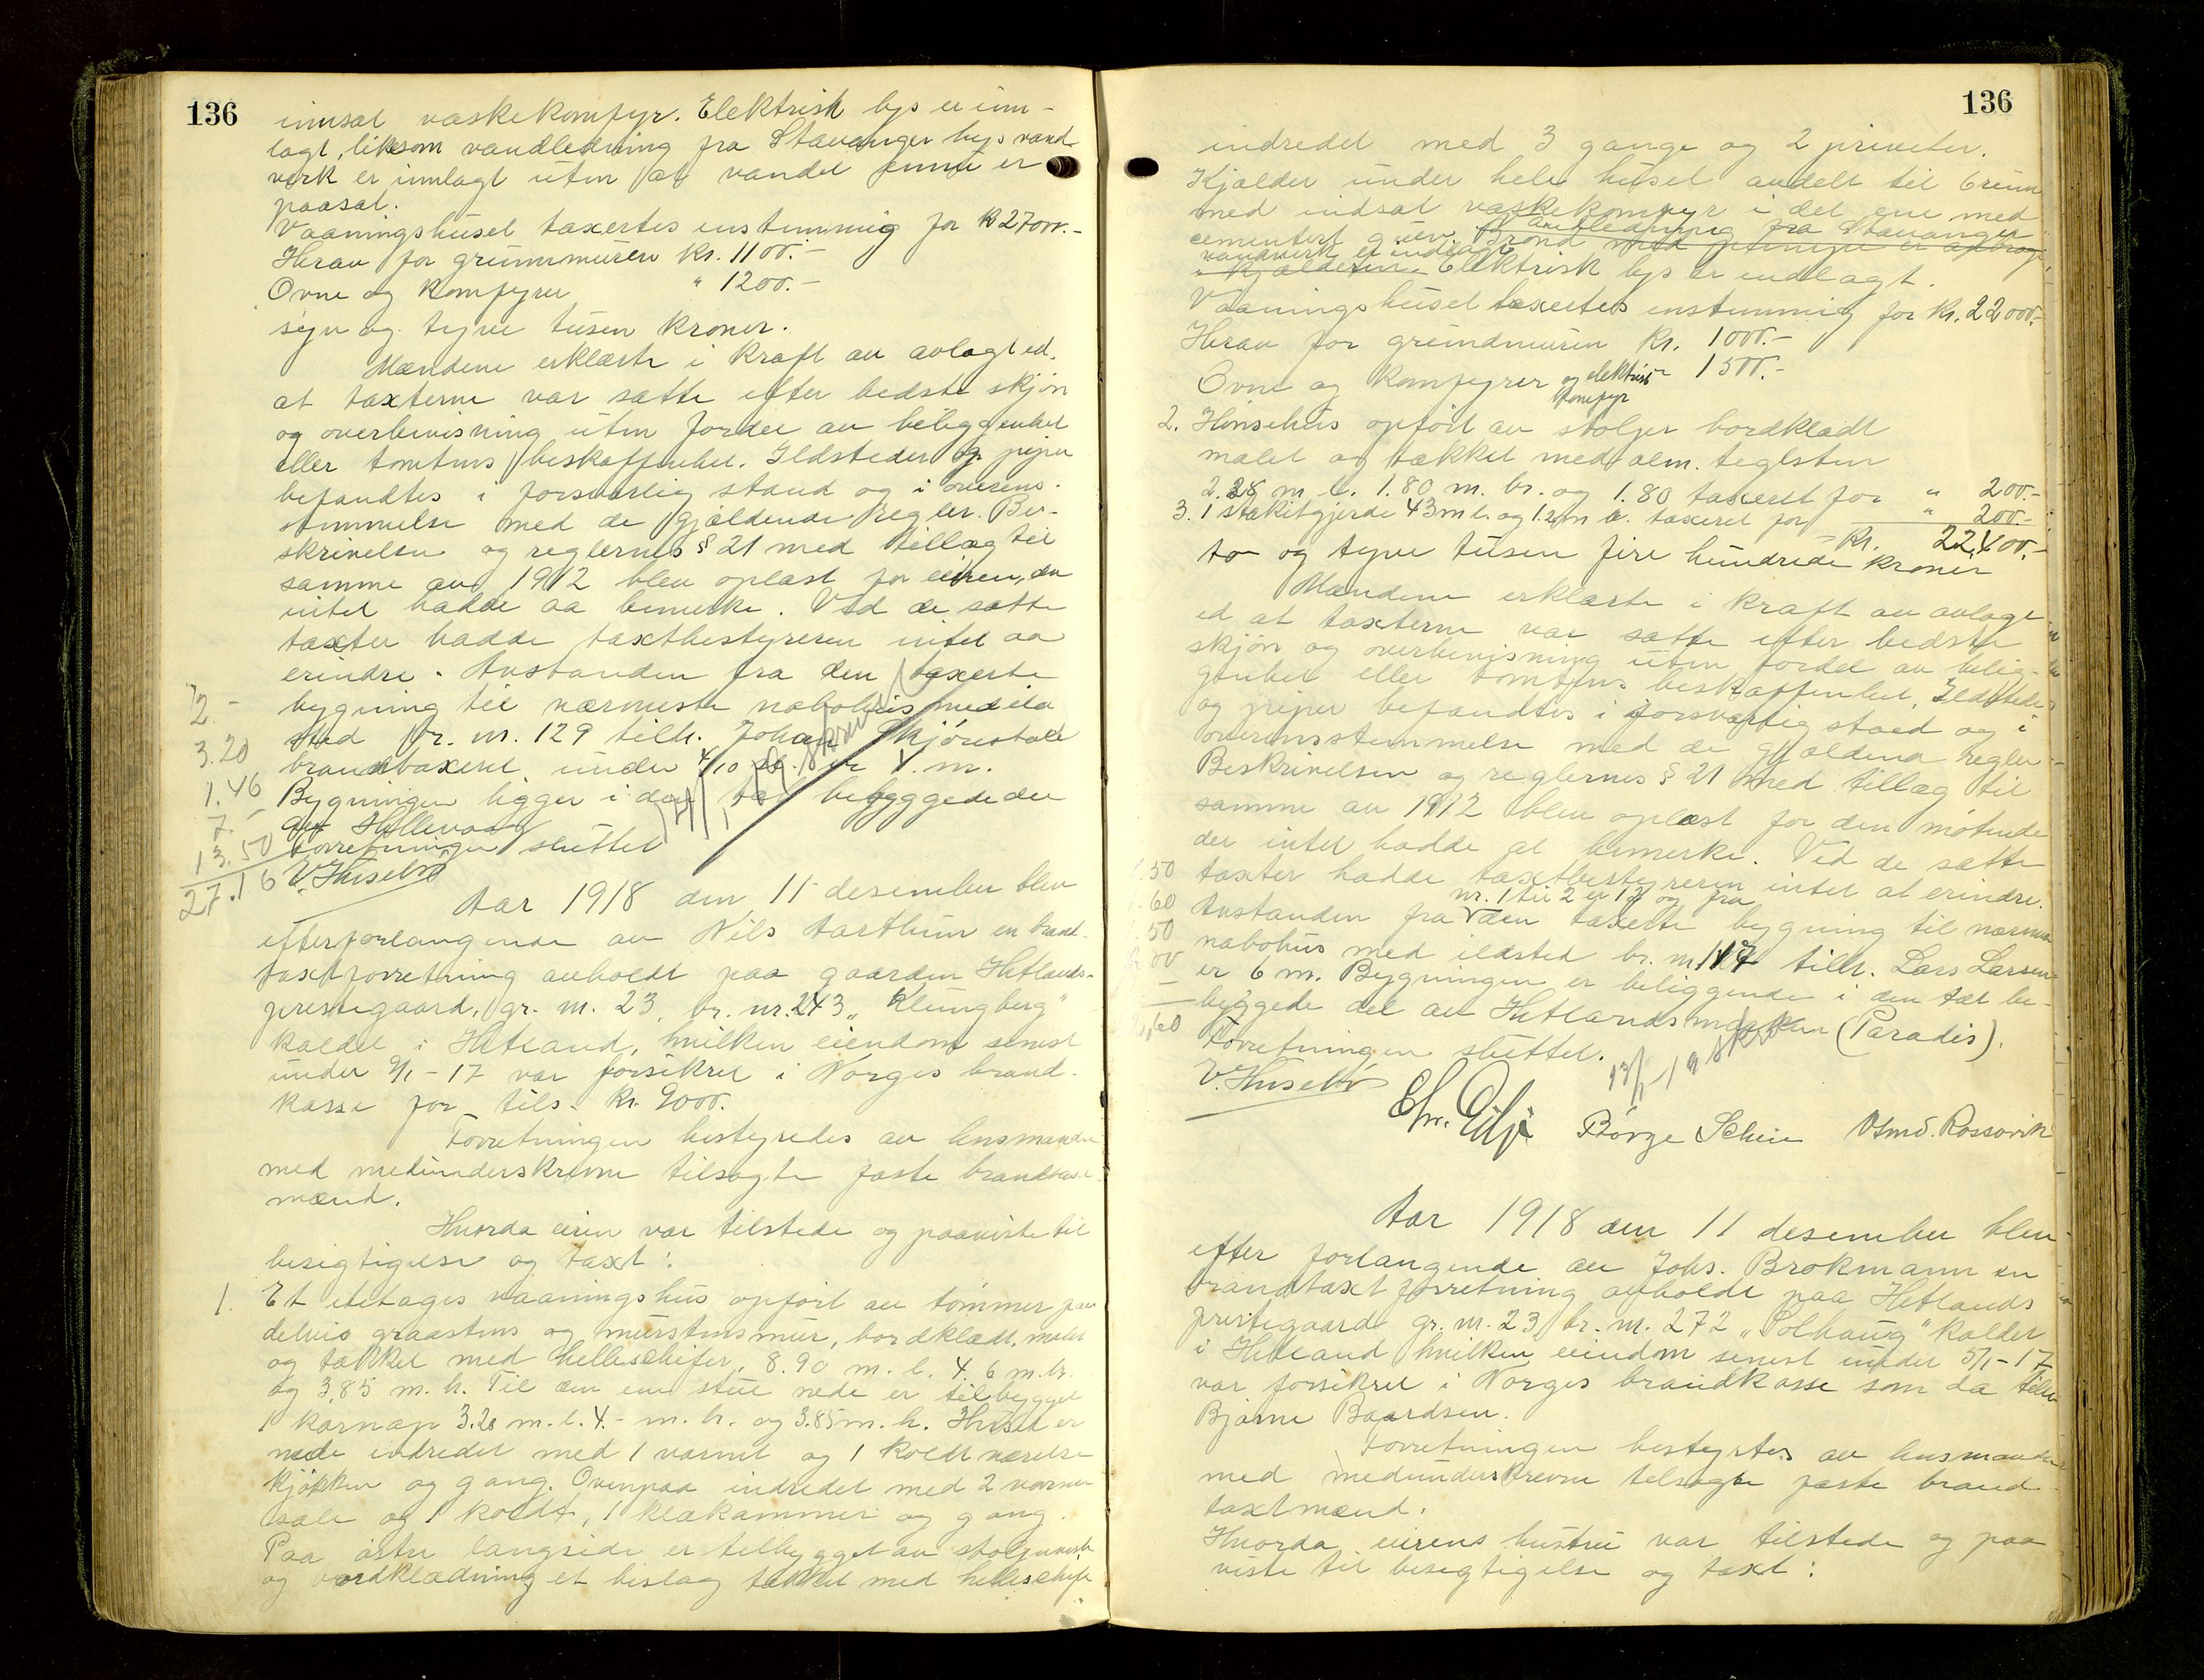 136
innsat vaskekomfyr. Elektrisk lys er inn-
lagt, likesom vandledning fra Stavanger bys vand-
verk er innlagt uten at vandet ennu er
paasat.
Vaaningshuset taxertes enstemmig for kr 27000.-
Herav for grunnmuren kr. 1100.-
Ovne og komfyrer " 1200.-
syv og tyve tusen kroner.
Mændene erklærte i kraft av avlagt ed.
at taxterne var satte efter bedste skjøn
og overbevisning uten fordel av beliggenhet
eller tomtens beskaffenhet. Ildsteder og piper
befandtes i forsvarlig stand og i overens-
stemmelse med de gjældende regler. Bes-
skrivelsen og reglernes § 21 med tillæg til
samme av 1912 blev oplæst for eieren, der
intet hadde aa bemerke. Ved de satte
taxter hadde taxtbestyreren intet aa
erindre. Avstanden fra den taxerte
bygning til nærmeste nabohus med ild
sted br. nr. 129 tilh. Johan Skjörestad
brandtaxeret under 4/10 er 4. m.
Bygningen ligger i den tæt byggede del
av Hillevaag
Forretningen sluttet
V. Husebö
2.-
3.20
1.46
7.-
13.50
27.16
Aar 1918 den 11 desember blev
efter forlangende av Nils Aarthun en brand-
taxtforretning avholdt paa gaarden Hetlands-
prestegaard, gr. nr. 23, br. nr. 243 „Klungberg"
kaldet i Hetland, hvilken eiendom senest
under 9/1-17 var forsikret i Norges brand-
kasse for tils. kr. 9000.
Forretningen bestyredes av lensmanden
med medunderskrevne tilsagte faste brandtaxt-
mænd.
Hvorda eieren var tilstede og paaviste til
besigtigelse og taxt:
1. Et etetages vaaningshus opfört av tömmer paa
delvis graastens og murstensmur, bordklædt, malet
og tækket med helleskifer, 8.90 m. l. 4.6 m. br.
og 3.85 m. h. Til den ene stue nede er tilbygget
1 karnap 3.20 m. l. 4.- m. br. og 3.85 m. h. Huset er
nede indredet med 1 varmt og 1 koldt værelse
kjøkken og gang. Ovenpaa indredet med 2 varme
sale og 1 koldt, 1 klækammer og gang.
Paa östre langside er tilbygget av stolpeverk
og bordklædning et bislag tækket med helleskifer
136
indredet med 3 gange og 2 priveter.
Kjælder under hele huset avdelt til 6 rum
med indsat vaskekomfyr i det ene med
cementert gulv. Vandledning fra Stavanger
vandverk er indlagt. Brönd med pumpe er anbragt
i kjælderen. Elektrisk lys er indlagt.
Vaaningshuset taxertes enstemmig for kr. 22000.-
Herav for grundmuren kr. 1000.-
Ovne og komfyrer og elektrisk komfyr " 1500.-
2. Hönsehus opfört av stolper bordklædt
malet og tækket med alm. teglsten
2.28 m l. 1.80 m. br. og 1.80 taxeret for " 200.-
3. 1 stakitgjerde 43 m l. og 1.20 m h. taxeret for " 200.-
Kr. 22,400.-
to og tyve tusen fire hundrede kroner
Mændene erklærte i kraft av avlagt
ed at taxterne var satte efter bedste
skjön og overbevisning uten fordel av belig-
genhet eller tomtens beskaffenhet. Ildsteder
og piper befandtes i forsvarlig stand og i
overensstemmelse med de gjældende regler
Beskrivelsen og reglernes § 21 med tillæg til
samme av 1912 blev oplæst for den mötende
der intet hadde at bemerke. Ved de satte
taxter hadde taxtbestyreren intet at erindre.
Avstanden fra nr. 1 til 2 er 17 og fra den taxerte bygning til nærmeste
nabohus med ildsted br. nr. 117 tilh. Lars Larsen
er 6 m. Bygningen er beliggende i den tæt be-
byggede del av Hetlandsmarken (Paradis).
Forretningen sluttet.
V. Husebö
Börge Scheie Osmd. Rossavik
Aar 1918 den 11 desember blev
efter forlangende av Johs. Brokmann en
brandtaxtforretning avholdt paa Hetlands
prestegaard gr. nr. 23, br. nr. 272 „Solhaug" kaldet
i Hetland hvilken eiendom senest under 5/1-17
var forsikret i Norges brandkasse som da tilh.
Bjarne Baardsen.
Forretningen bestyrtes av lensmanden
med medunderskrevne tilsagte faste brand
taxtmænd.
Hvorda eierens hustru var tilstede og paa
viste til besigtigelse og taxt: